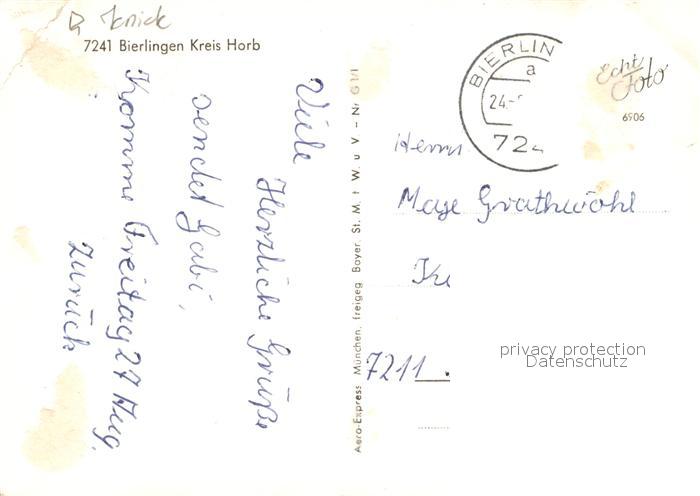 Knick
7241 Bierlingen Kreis Horb
Viele
Herzliche Grüße
sendet Gabi,
Komme Freitag 27 Aug.
zurück
Aero-Express München, freigeg. Bayer. St. M. f. W. u. V. - Nr. G 1/1
BIERLIN
a
24.-
72
Echt
Foto
6906
Herrn
Grathwohl
7211
privacy protection
Datenschutz